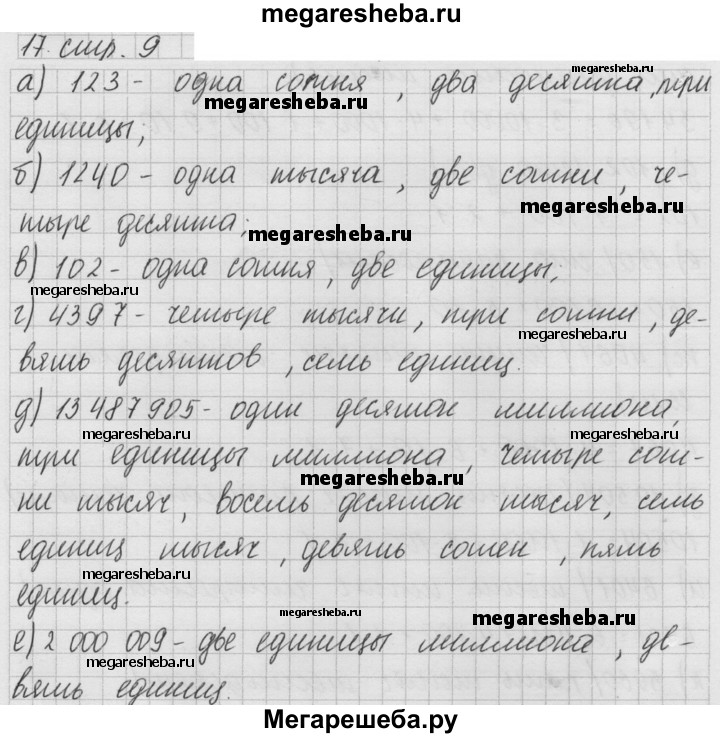 megaresheba.ru
17. стр. 9
megaresheba.ru
а) 123 - одна сотня, два десятка, три
megaresheba.ru
единицы;
б) 1240 - одна тысяча, две сотни, че-
megaresheba.ru
тыре десятка;
megaresheba.ru
в) 102 - одна сотня, две единицы;
megaresheba.ru
г) 4397 - четыре тысячи, три сотни, де-
megaresheba.ru
вять десятков, семь единиц.
д) 13 487 905 - один десяток миллиона,
megaresheba.ru megaresheba.ru
три единицы миллиона, четыре сот-
megaresheba.ru
ни тысяч, восемь десяток тысяч, семь
единиц тысяч, девять сотен, пять
megaresheba.ru
единиц.
megaresheba.ru megaresheba.ru
е) 2 000 009 - две единицы миллиона, дв-
megaresheba.ru megaresheba.ru
вять единиц.
Мегарешеба.ру